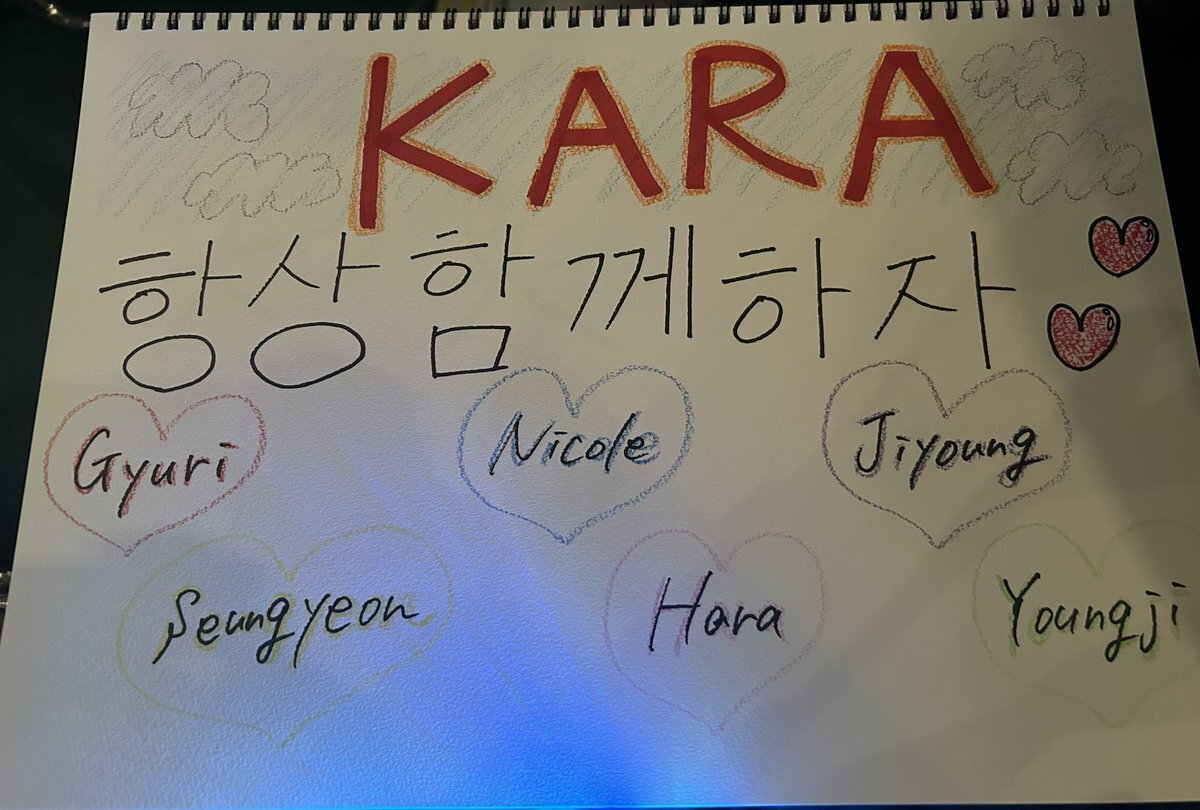 KARA
항상함께하자
Gyuri Nicole Jiyoung
Seungyeon Hara Youngji